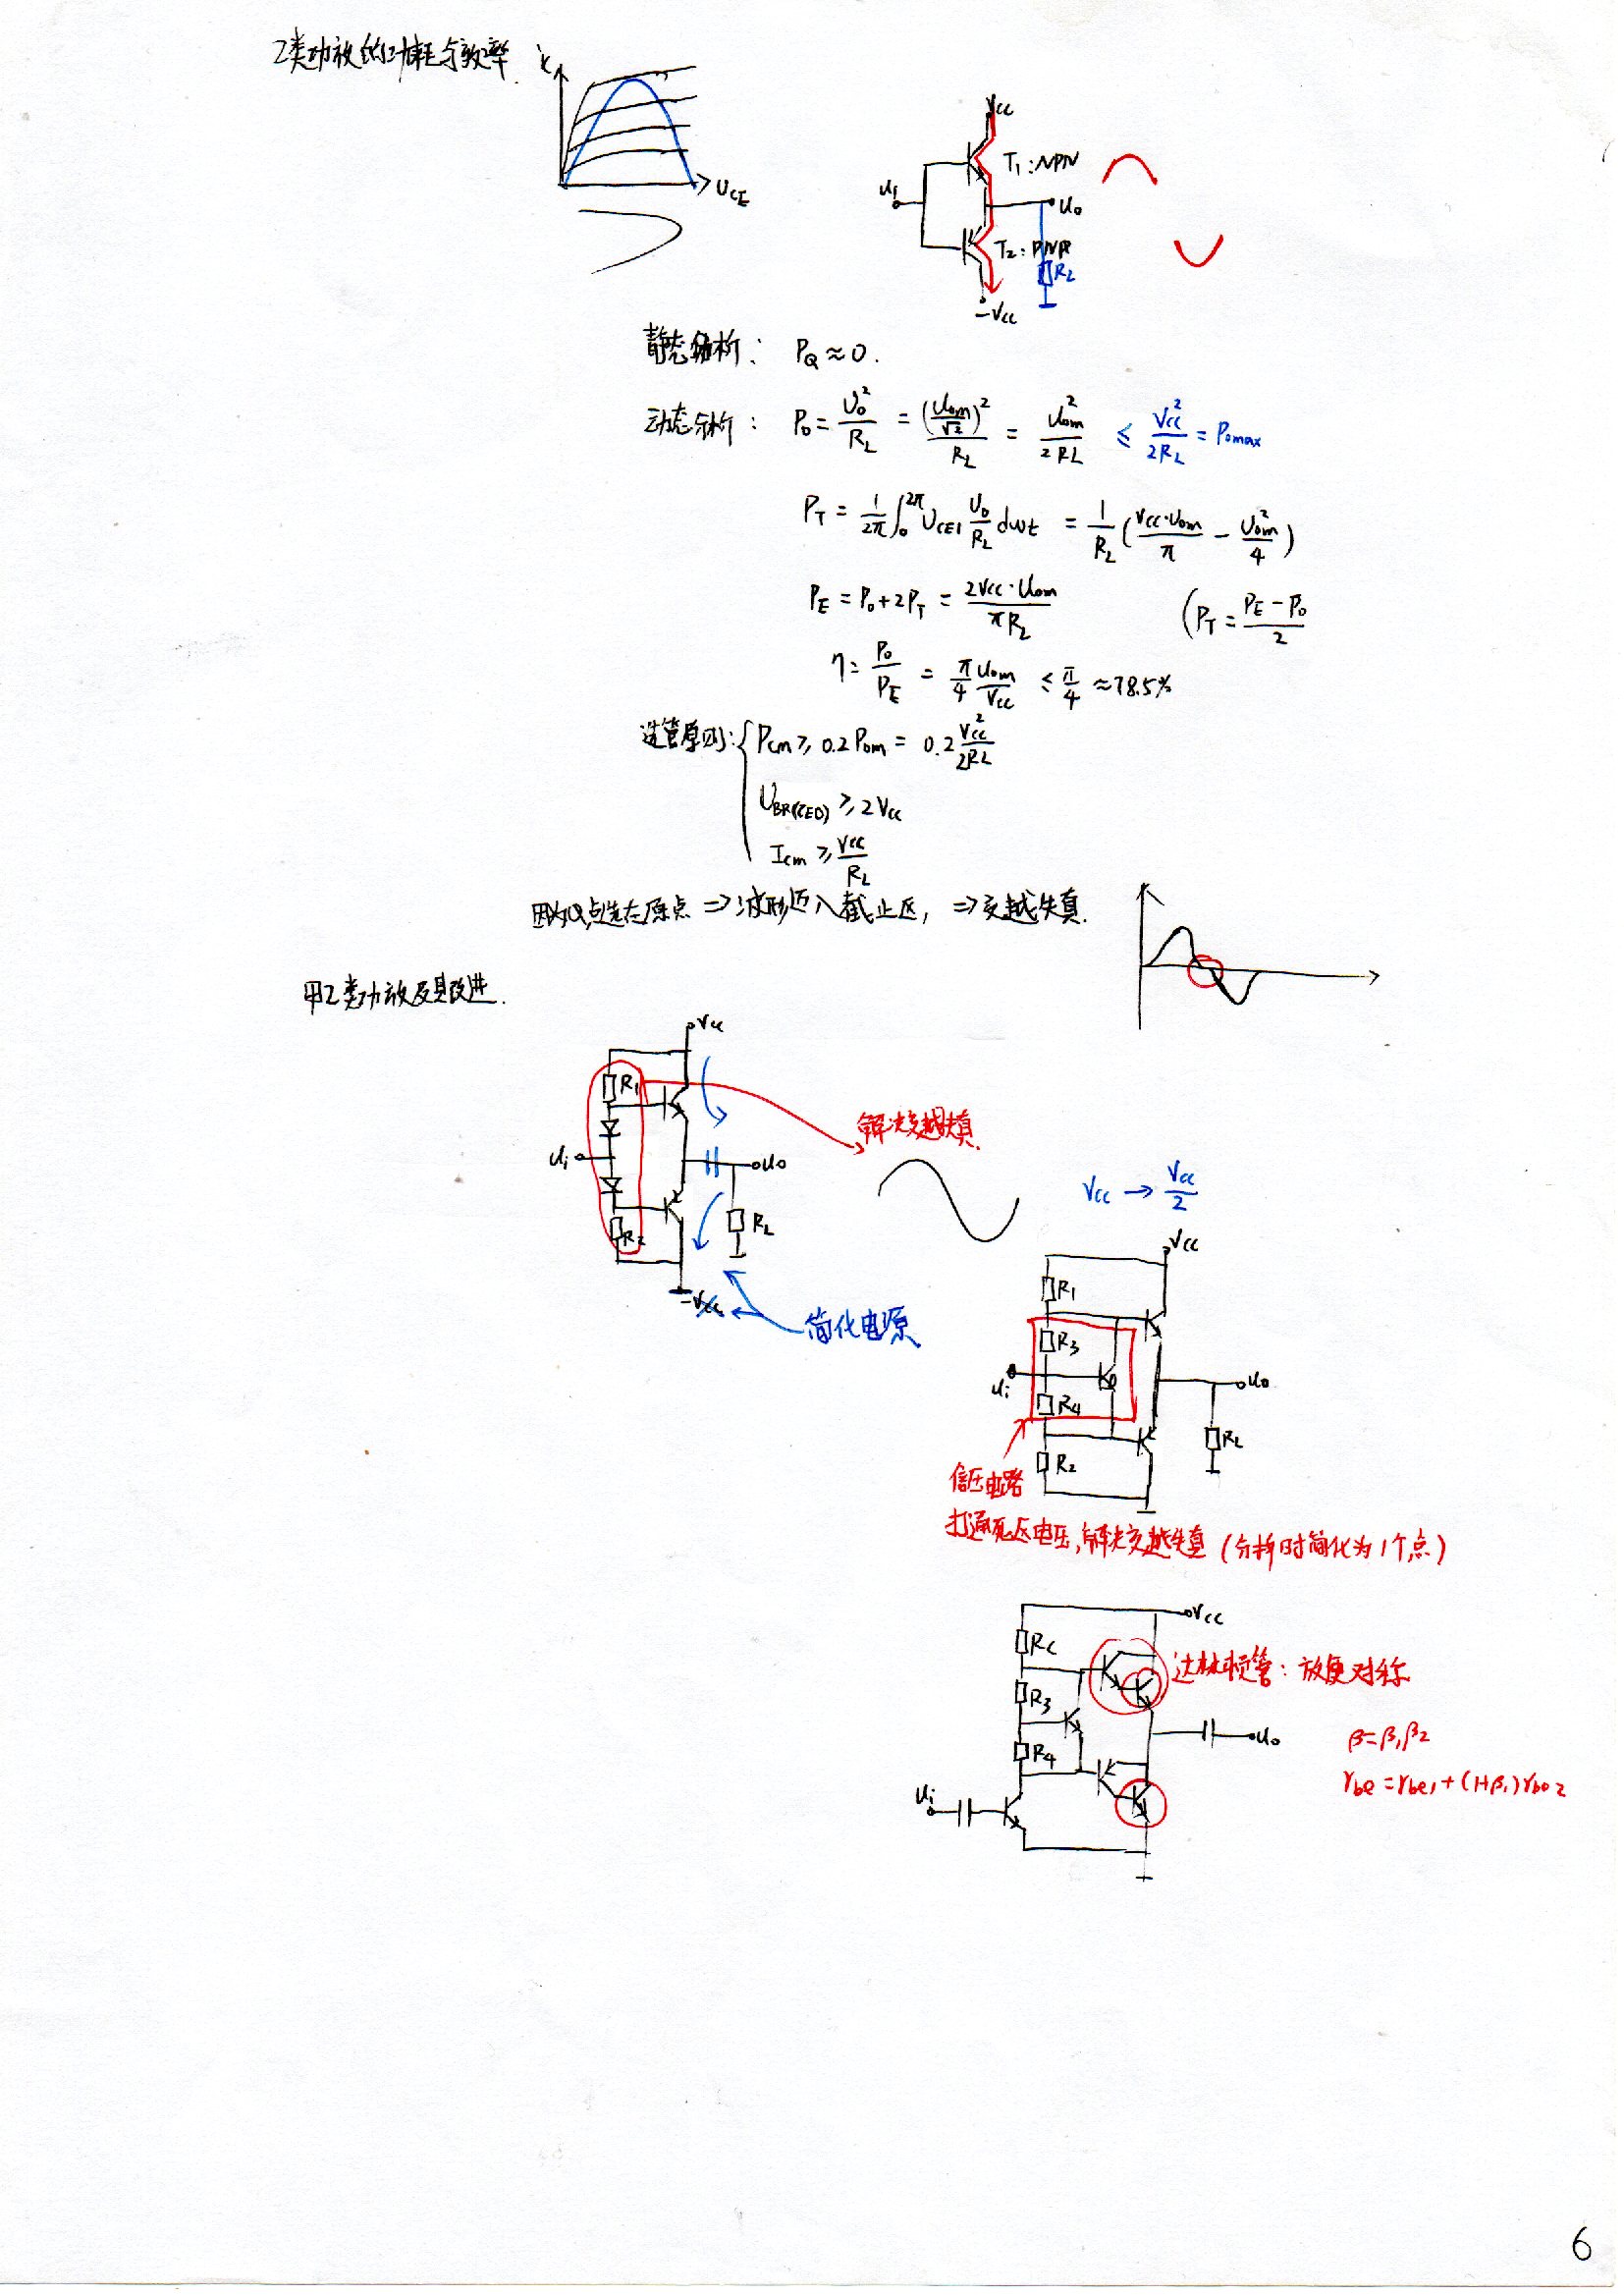 乙类功放的功耗与效率
ic
UCE
Vcc
T₁:NPN
ui
uo
T₂:PNP
RL
-Vcc
静态分析: PQ≈0.
动态分析: Po = Uo²/RL = (Uom/√2)²/RL = Uom²/2RL ≤ Vcc²/2RL = Pomax
PT = 1/2π ∫₀^2π UCE1 Uo/RL dωt = 1/RL (Vcc·Uom/π - Uom²/4)
PE = Po+2PT = 2Vcc·Uom/πRL (PT = PE-Po/2
η = Po/PE = π/4 Uom/Vcc ≤ π/4 ≈78.5%
选管原则: { Pcm ≥ 0.2Pom = 0.2 Vcc²/2RL
UBR(CEO) ≥ 2Vcc
Icm ≥ Vcc/RL
因为Q点选在原点 => 波形迈入截止区, => 交越失真.
甲乙类功放及其改进.
Vcc
R₁
解决交越失真.
ui
uo
R₂
RL
-Vcc
简化电源
Vcc → Vcc/2
Vcc
R₁
R₃
ui
uo
R₄
RL
R₂
倍压电路
打通死区电压,解决交越失真 (分析时简化为1个点)
Vcc
Rc
达林顿管: 放便对称
R₃
uo
β=β₁β₂
R₄
rbe = rbe1+(1+β₁)rbe2
ui
6